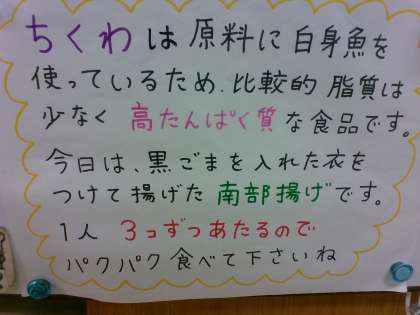 ちくわは原料に白身魚を
使っているため、比較的 脂質は
少なく 高たんぱく質な食品です。
今日は、黒ごまを入れた衣を
つけて揚げた 南部揚げです。
1人 3コずつあたるので
パクパク食べて下さいね